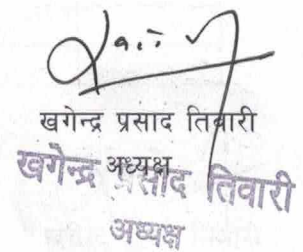 खगेन्द्र प्रसाद तिवारी
अध्यक्ष
खगेन्द्र प्रसाद तिवारी
अध्यक्ष